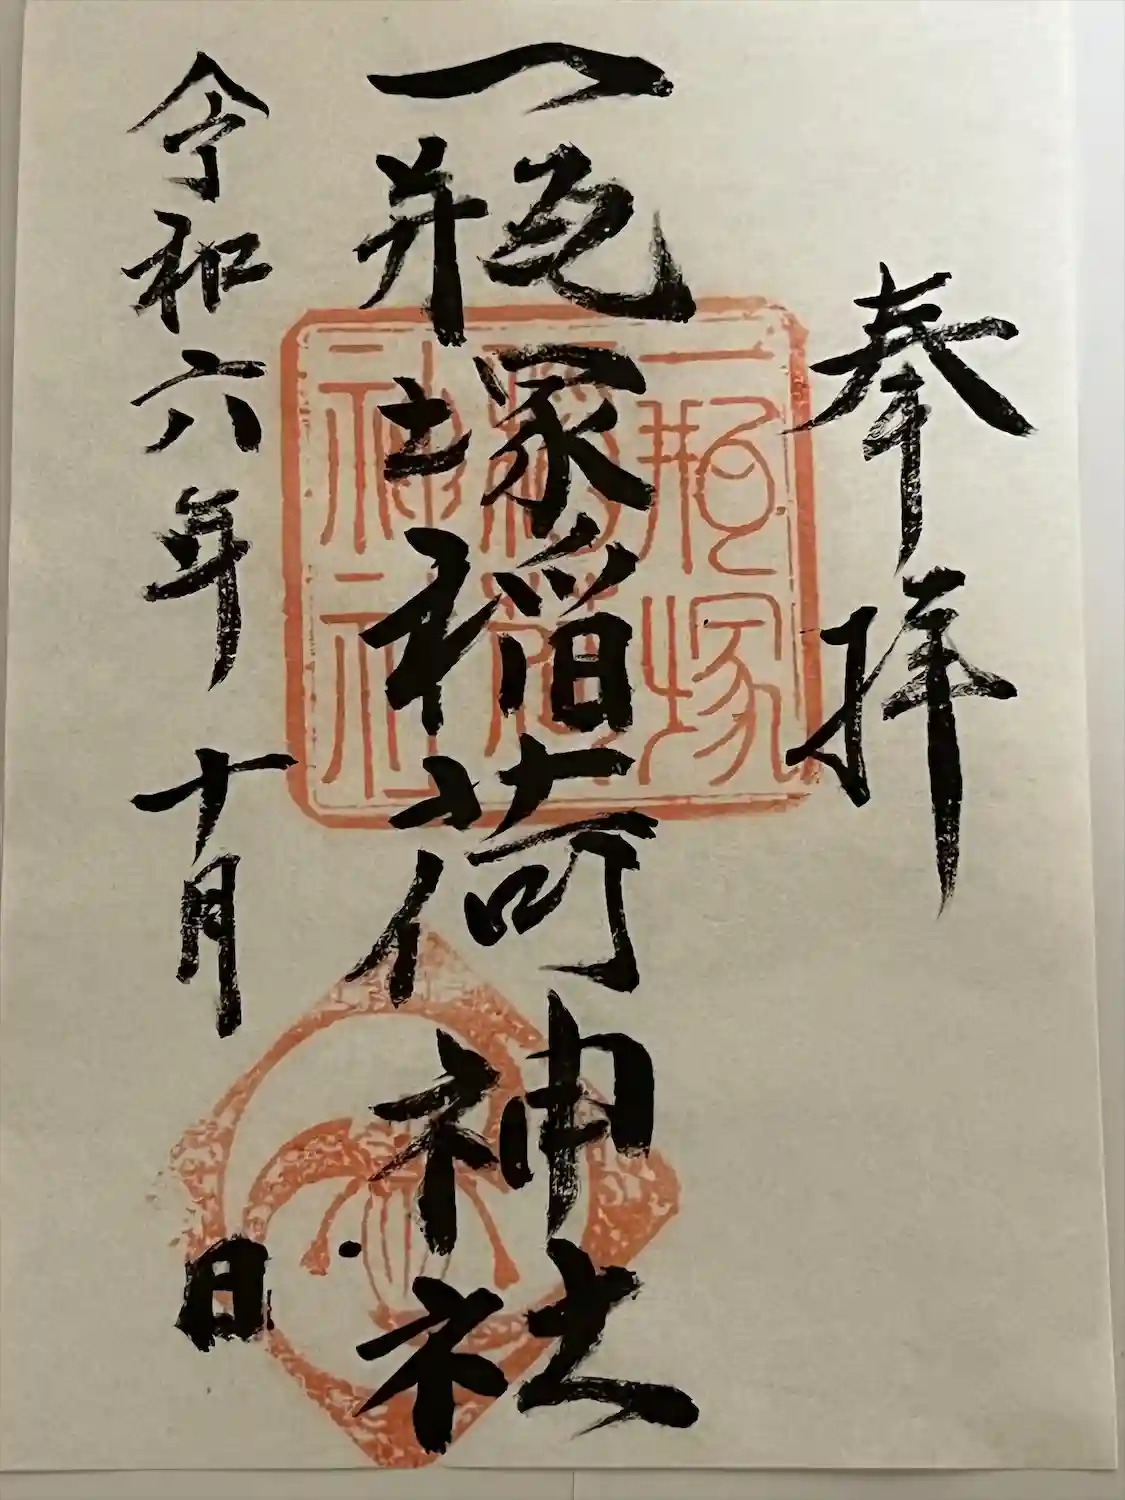 奉拝
一瓶塚稲荷神社
令和六年十月 日
一瓶塚
稲荷
神社